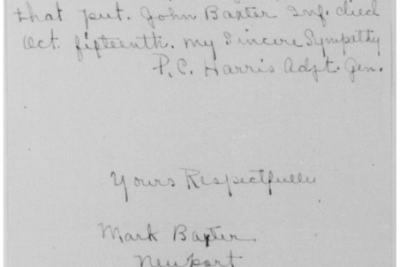 that pvt. John Baxter Inf. died
Oct. fifteenth. My Sincere Sympathy
P.C. Harris Adjt. Gen.
Yours Respectfully
Mark Baxter
Newport